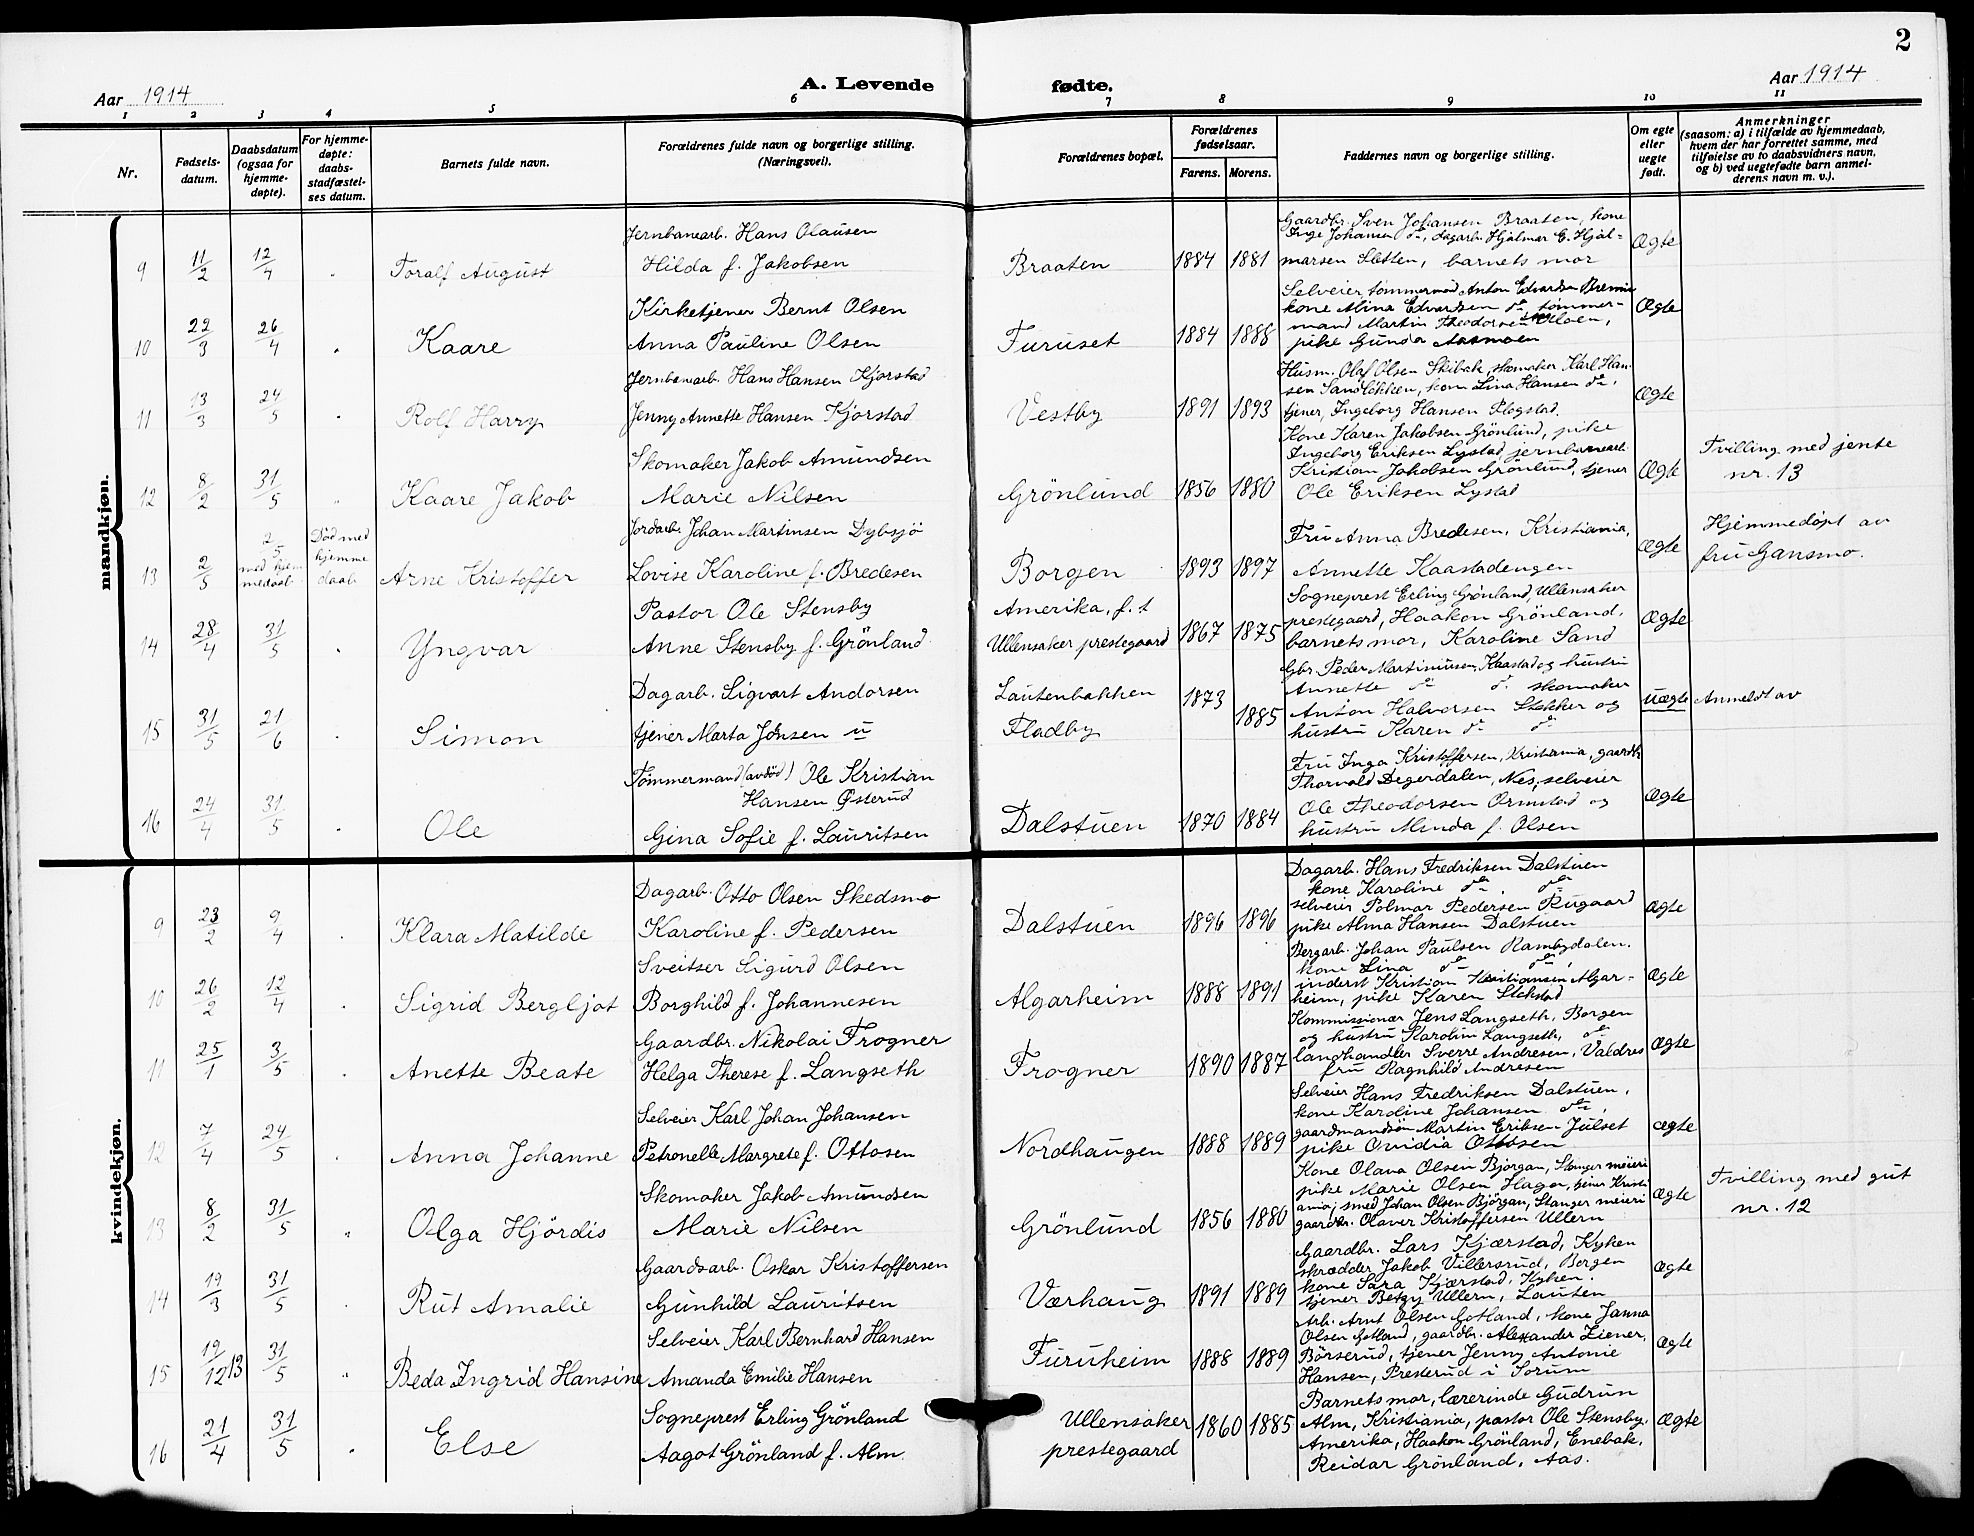 2
Aar 1914
A. Levende
fødte.
Aar 1914
1 2 3 4 5 6 7 8 9 10 11
Nr.
Fødsels-
datum.
Daabsdatum
(ogsaa for
hjemme-
døpte).
For hjemme-
døpte:
daabs-
stadfæstel-
ses datum.
Barnets fulde navn.
Forældrenes fulde navn og borgerlige stilling.
(Næringsvei).
Forældrenes bopæl.
Forældrenes
fødselsaar.
Farens. Morens.
Faddernes navn og borgerlige stilling.
Om egte
eller
uegte
født.
Anmerkninger
(saasom: a) i tilfælde av hjemmedaab,
hvem der har forrettet samme, med
tilføielse av to daabsvidners navn,
og b) ved uegtefødte barn anmel-
derens navn m. v.).
mandkjøn.
9 11/2 12/4 " Toralf August
Jernbanearb. Hans Olausen
Hilda f. Jakobsen
Braaten 1884 1881
Gaardbr. Sven Johansen Braaten, kone
Inge Johansen do, dagarb. Hjalmar E. Hjal-
marsen Sletten, barnets mor
Ægte
10 22/3 26/4 " Kaare
Kirketjener Bernt Olsen
Anna Pauline Olsen
Furuset 1884 1888
Selveier, tømmermand Anton Edvardsen
kone Alina Edvardsen do, tømmer-
mand Martin Theodorsen
pike Gunda Aasmoen
Ægte
11 13/3 24/5 " Rolf Harry
Jernbanearb. Hans Hansen Kjorstad
Jenny Annette Hansen Kjorstad
Vestby 1891 1893
Husm. Olaf Olsen Skibak, skomaker Karl Han-
sen Sandløkken, kone Lina Hansen do,
tjener, Ingeborg Hansen Plogstad.
Ægte
12 8/2 31/5 " Kaare Jakob
Skomaker Jakob Amundsen
Marie Nilsen
Grönlund 1856 1880
Kone Karen Jakobsen Grönlund, pike
Ingeborg Eriksen Lystad, jernbanearb.
Kristian Jakobsen Grönlund, tjener
Ole Eriksen Lystad
Ægte
Tvilling med jente
nr. 13
13 2/5 2/5 med hjem
medaab.
Död med
hjemme
daab
Arne Kristoffer
Jordarb. Johan Martinsen Dybsjö
Lovise Karoline f. Bredesen
Borgen 1893 1897
Fru Anna Bredesen, Kristiania,
Annette Kaastadengen
Ægte
Hjemmedöpt av
fru Gansmo.
14 28/4 31/5 " Yngvar
Pastor Ole Stensby
Anne Stensby f. Grönland
Amerika, f. t
Ullensaker prestegaard
1867 1875
Sogneprest Erling Grönland, Ullensaker
prestegaard, Haakon Grönland,
barnets mor, Karoline Sand
Ægte
15 31/5 21/6 " Simon
Dagarb. Sigvart Andorsen
tjener Marta Jonsen u
Lautenbakken
Fladby
1873 1885
Gbr. Peder Martiniusen Kaastad og hustru
Annette do do skomaker
Anton Halvorsen Stokker og
hustru Karen do do
uægte
Anmeldt av
16 24/4 31/5 " Ole
Tømmermand (avdöd) Ole Kristian
Hansen Østerud
Gina Sofie f. Lauritsen
Dalstuen 1870 1884
Fru Inga Kristoffersen, Kristiania, gaardb.
Thorvald Degerdalen, Nes, selveier
Ole Theodorsen Ormstad og
hustru Minda f. Olsen
Ægte
kvindekjøn.
9 23/2 9/4 " Klara Matilde
Dagarb. Otto Olsen Skedsmo
Karoline f. Pedersen
Dalstuen 1896 1896
Dagarb. Hans Fredriksen Dalstuen
kone Karoline do do
selveier Polmar Pedersen Rugaard
pike Alma Hansen Dalstuen
Ægte
10 26/2 12/4 " Sigrid Bergljot
Sveitser Sigurd Olsen
Borghild f. Johannesen
Algarheim 1888 1891
Bergarb. Johan Paulsen Rambydalen.
kone Lina do do,
inderst Kristian Kristiansen Algar-
heim, pike Karen Stokstad
Ægte
11 25/1 3/5 " Anette Beate
Gaardbr. Nikolai Frogner
Helga Therese f. Langseth
Frogner 1890 1887
Kommissionær Jens Langseth, Borgen
og hustru Karoline Langseth, do
landhandler Sverre Andresen, Valdres
fru Ragnhild Andresen
Ægte
12 7/4 24/5 " Anna Johanne
Selveier Karl Johan Johansen
Petronelle Margrete f. Ottosen
Nordhaugen 1888 1889
Selveier Hans Fredriksen Dalstuen,
kone Karoline Johansen do,
gaardmandsön Martin Eriksen Julset
pike Ovidia Ottosen
ægte
13 8/2 31/5 " Olga Hjördis
Skomaker Jakob Amundsen
Marie Nilsen
Grönlund 1856 1880
Kone Olava Olsen Bjorgan, Stanger meieri
pike Marie Olsen Hagen, tjener Kristi
ania, smed Johan Olsen Björgan, Stanger meieri
gaardbr. Olaver Kristoffersen Ullern
Ægte
Tvilling med gut
nr. 12
14 19/3 31/5 " Rut Amalie
Gaardsarb. Oskar Kristoffersen
Gunhild Lauritsen
Værhaug 1891 1889
Gaardbr. Lars Kjærstad, Kyken
skrædder Jakob Villersrud, Borgen
kone Sara Kjærstad, Kyken.
tjener Betzy Ullern, Lauten
Ægte
15 19/12 13 31/5 " Beda Ingrid Hansine
Selveier Karl Bernhard Hansen
Amanda Emilie Hansen
Furuheim 1888 1889
Arb. Arnt Olsen Gotland, kone Janna
Olsen Gotland, gaardbr. Alexander Ziener,
Börserud, tjener Jenny Antonie
Hansen, Presterud i Sorum
Ægte
16 21/4 31/5 " Else
Sogneprest Erling Grönland
Aagot Grönland f. Alm.
Ullensaker
prestegaard
1860 1885
Barnets mor, lærerinde Gudrun
Alm, Kristiania, pastor Ole Stensby,
Amerika, Haakon Grönland, Enebak,
Reidar Grönland, Aas.
Ægte